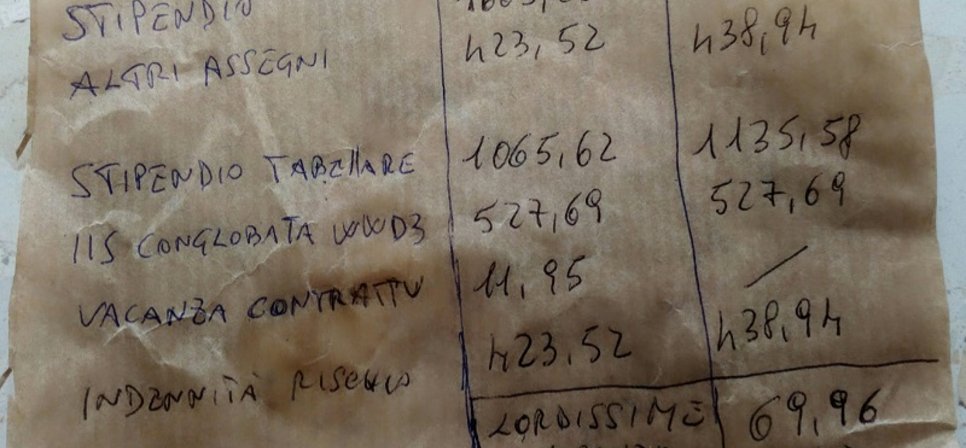 STIPENDIO
ALTRI ASSEGNI 423,52 438,94
STIPENDIO TABELLARE 1065,62 1135,58
IIS CONGLOBATA 527,69 527,69
VACANZA CONTRATTU 11,95 /
INDENNITÀ RISCHIO 423,52 438,94
LORDISSIME 69,96